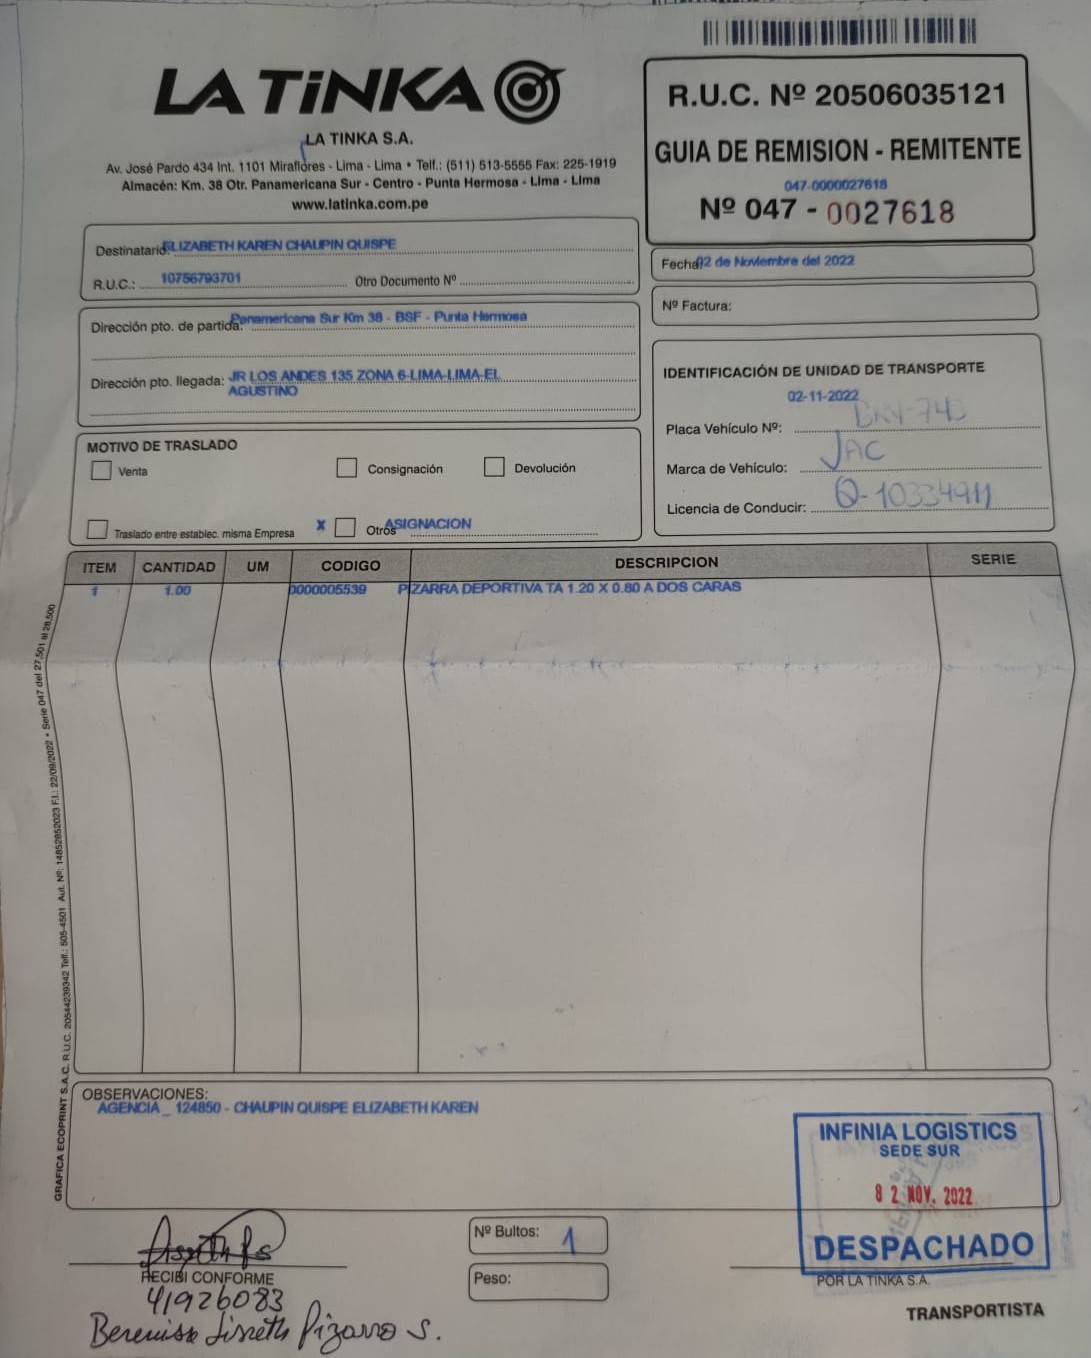 LA TiNKA
LA TINKA S.A.
Av. José Pardo 434 Int. 1101 Miraflores - Lima - Lima • Telf.: (511) 513-5555 Fax: 225-1919
Almacén: Km. 38 Otr. Panamericana Sur - Centro - Punta Hermosa - Lima - Lima
www.latinka.com.pe
R.U.C. Nº 20506035121
GUIA DE REMISION - REMITENTE
047-0000027618
Nº 047 - 0027618
Destinatario: ELIZABETH KAREN CHAUPIN QUISPE
R.U.C.: 10756793701 Otro Documento Nº
Fecha: 02 de Noviembre del 2022
Nº Factura:
Dirección pto. de partida: Panamericana Sur Km 38 - BSF - Punta Hermosa
Dirección pto. llegada: JR LOS ANDES 135 ZONA 6-LIMA-LIMA-EL
AGUSTINO
IDENTIFICACIÓN DE UNIDAD DE TRANSPORTE
02-11-2022
Placa Vehículo Nº:
Marca de Vehículo: JAC
Licencia de Conducir: Q-10334911
MOTIVO DE TRASLADO
Venta Consignación Devolución
Traslado entre establec. misma Empresa X Otros ASIGNACION
ITEM CANTIDAD UM CODIGO DESCRIPCION SERIE
1 1.00 0000005539 PIZARRA DEPORTIVA TA 1.20 X 0.80 A DOS CARAS
GRAFICA ECOPRINT S.A.C. R.U.C. 20544239342 Telf.: 505-4501 Aut. Nº: 14852852023 F.I.: 22/09/2022 * Serie 047 del 27,501 al 28,500
OBSERVACIONES:
AGENCIA_ 124850 - CHAUPIN QUISPE ELIZABETH KAREN
INFINIA LOGISTICS
SEDE SUR
02 NOV. 2022
DESPACHADO
Nº Bultos: 1
Peso:
RECIBI CONFORME
41926083
Berenisse Lisseth Pizarro S.
POR LA TINKA S.A.
TRANSPORTISTA